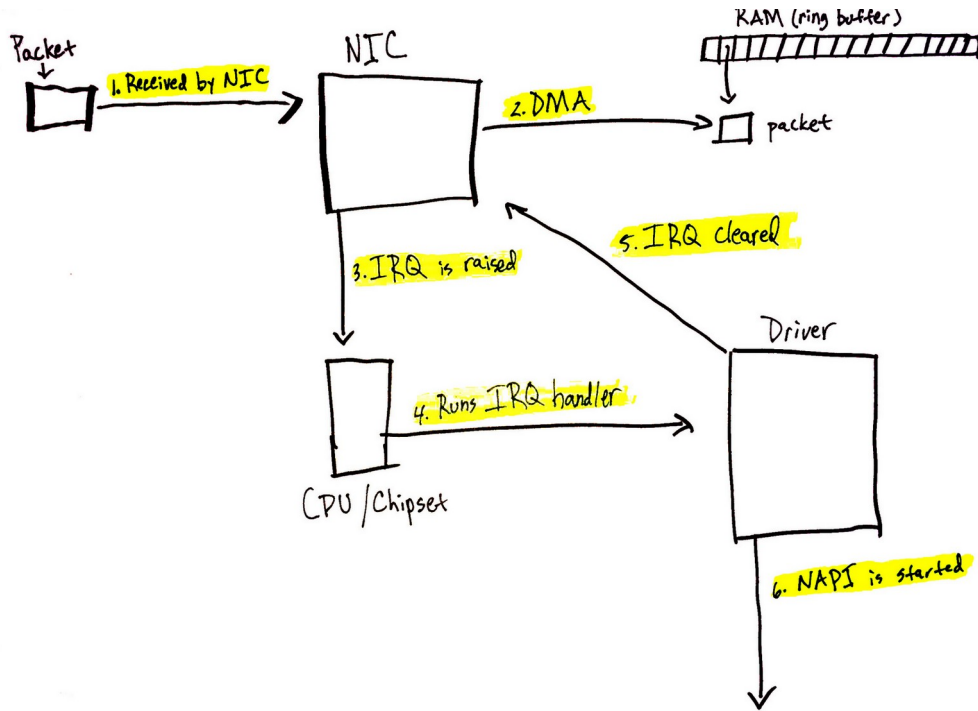 Packet
1. Received by NIC
NIC
RAM (ring buffer)
2. DMA
packet
3. IRQ is raised
5. IRQ cleared
Driver
4. Runs IRQ handler
CPU/Chipset
6. NAPI is started